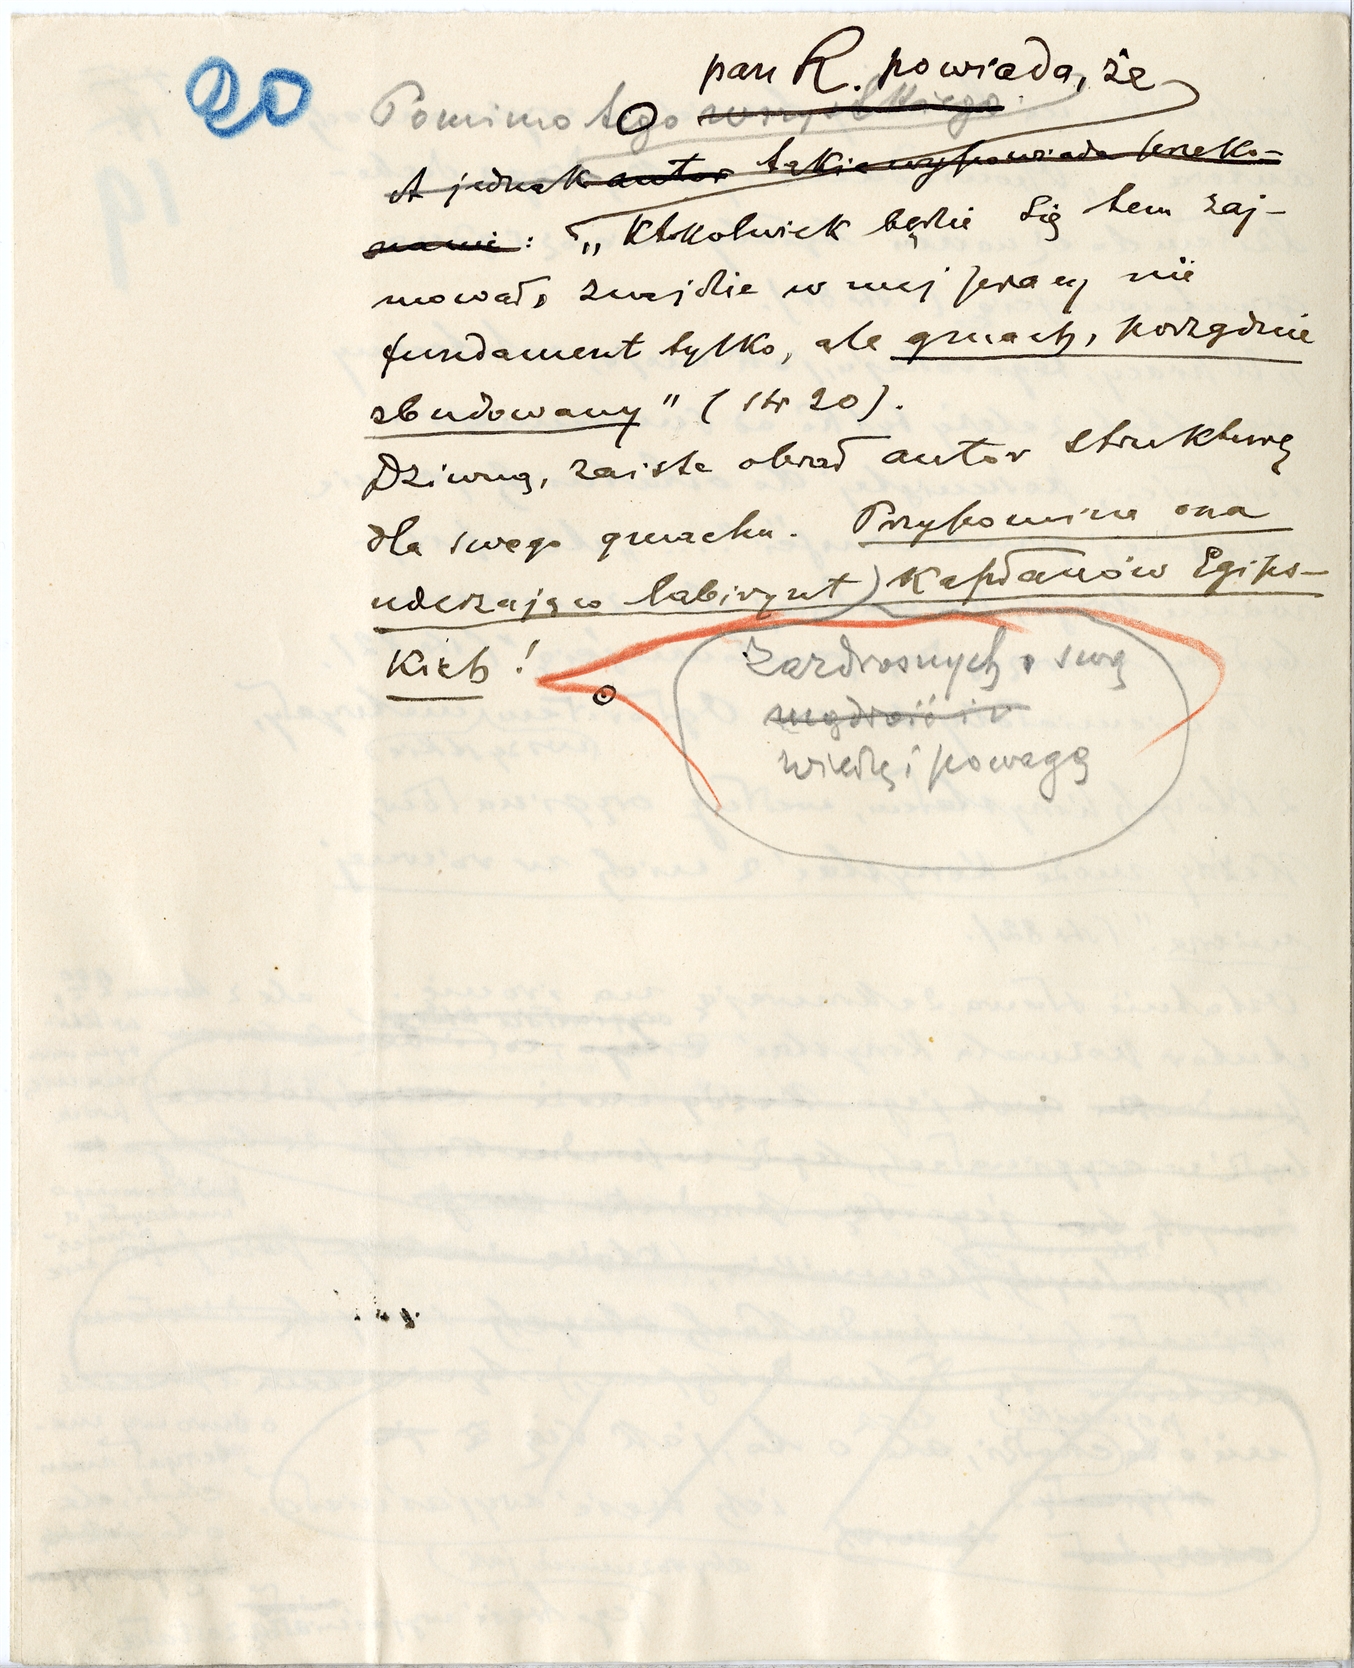 20
pan R. powiada, że
Pomimo tego wszystkiego
A jednak autor takie wypowiada przeko-
nanie: „Ktokolwiek będzie się tem zaj-
mował, znajdzie w mej pracy nie
fundament tylko, ale gmach, porządnie
zbudowany" (str 20).
Dziwną, zaiste obrał autor strukturę
dla swego gmachu. Przypomina ona
uderzająco labirynt kapłanów Egips-
kich!
zazdrosnych o swą
mądrość i w
wiedzę i powagę